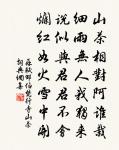 山茶相對阿誰栽
細雨無人我獨來
說似與君君不會
爛紅如火雪中開
蘇軾邵伯梵行寺山茶
詞典網集